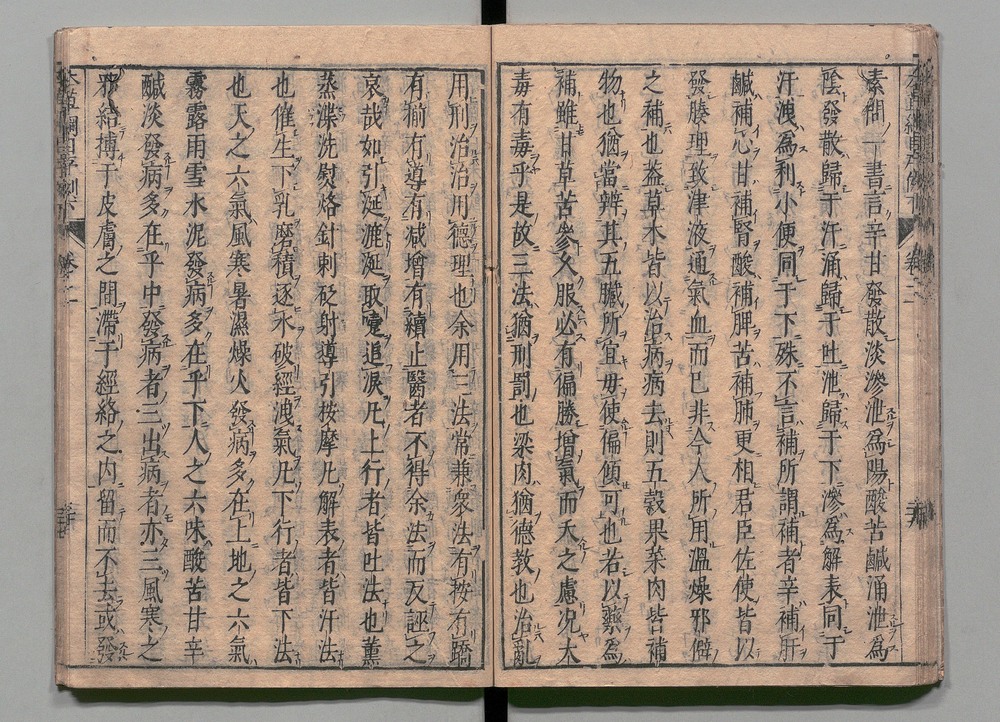 素問一書言辛甘發散淡滲泄爲陽酸苦鹹涌泄爲
陰發散歸于汗涌歸于吐泄歸于下滲爲解表同于
汗洩爲利小便同于下殊不言補所謂補者辛補肝
鹹補心甘補腎酸補脾苦補肺更相君臣佐使皆以
發腠理致津液通氣血而已非今人所用溫燥邪僻
之補也蓋草木皆以治病病去則五穀果菜肉皆補
物也猶當辨其五臟所宜毋使偏傾可也若以藥爲
補雖甘草苦參久服必有偏勝增氣而夭之慮況大
毒有毒乎是故三法猶刑罰也粱肉猶德教也治亂
用刑治治用德理也余用三法常兼衆法有按有蹻
有揃有導有減增有續止醫者不得余法而反誣之
哀哉如引涎漉涎取嚏追淚凡上行者皆吐法也薰
蒸渫洗熨烙針刺砭射導引按摩凡解表者皆汗法
也催生下乳磨積逐水破經洩氣凡下行者皆下法
也天之六氣風寒暑濕燥火發病多在上地之六氣
霧露雨雪水泥發病多在乎下人之六味酸苦甘辛
鹹淡發病多在乎中發病者三出病者亦三風寒之
邪結搏于皮膚之間滯于經絡之內留而不去或發